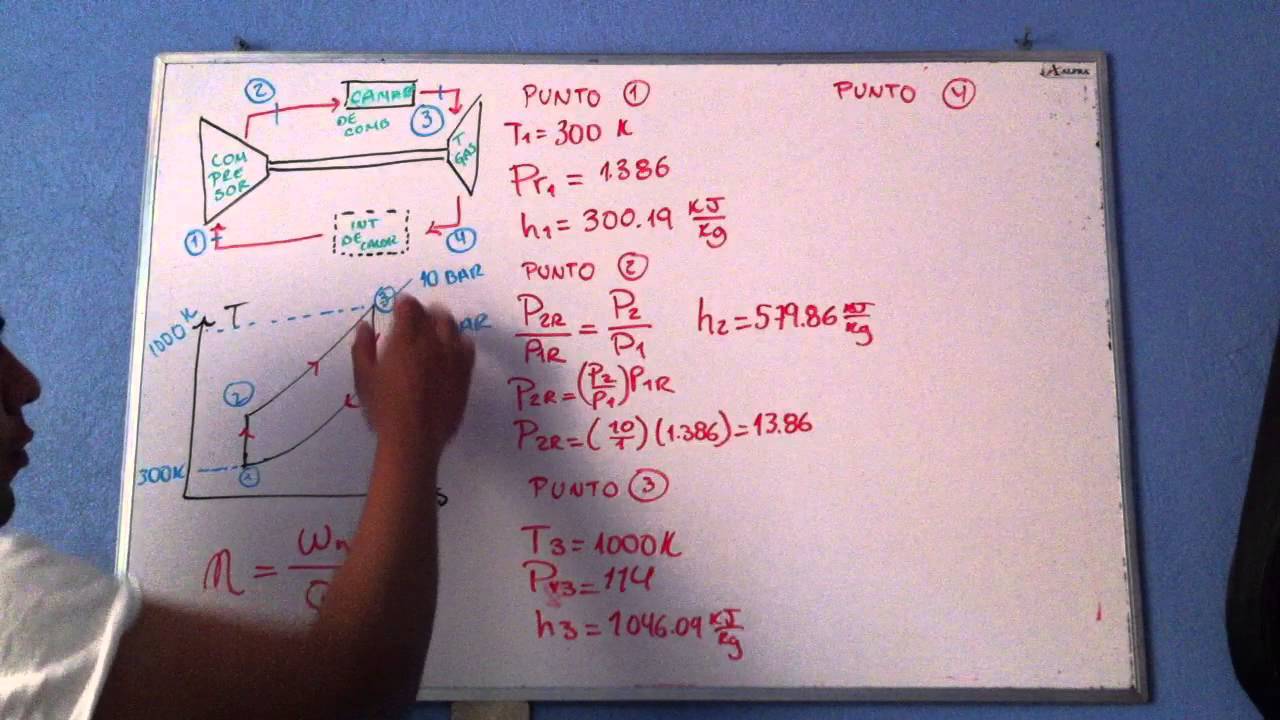 ALPHA
2
CAMAR
DE
COMB
3
COM
PRE
SOR
T
GAS
1
INT
DE CALOR
4
10 BAR
T
1000 K
3
2
300K
1
S
η =
PUNTO 1
T1 = 300 K
Pr1 = 1.386
h1 = 300.19 KJ/Kg
PUNTO 2
P2R/P1R = P2/P1
h2 = 579.86 KJ/Kg
P2R = (P2/P1) P1R
P2R = (10/1) (1.386) = 13.86
PUNTO 3
T3 = 1000K
Pr3 = 114
h3 = 1046.09 KJ/Kg
PUNTO 4